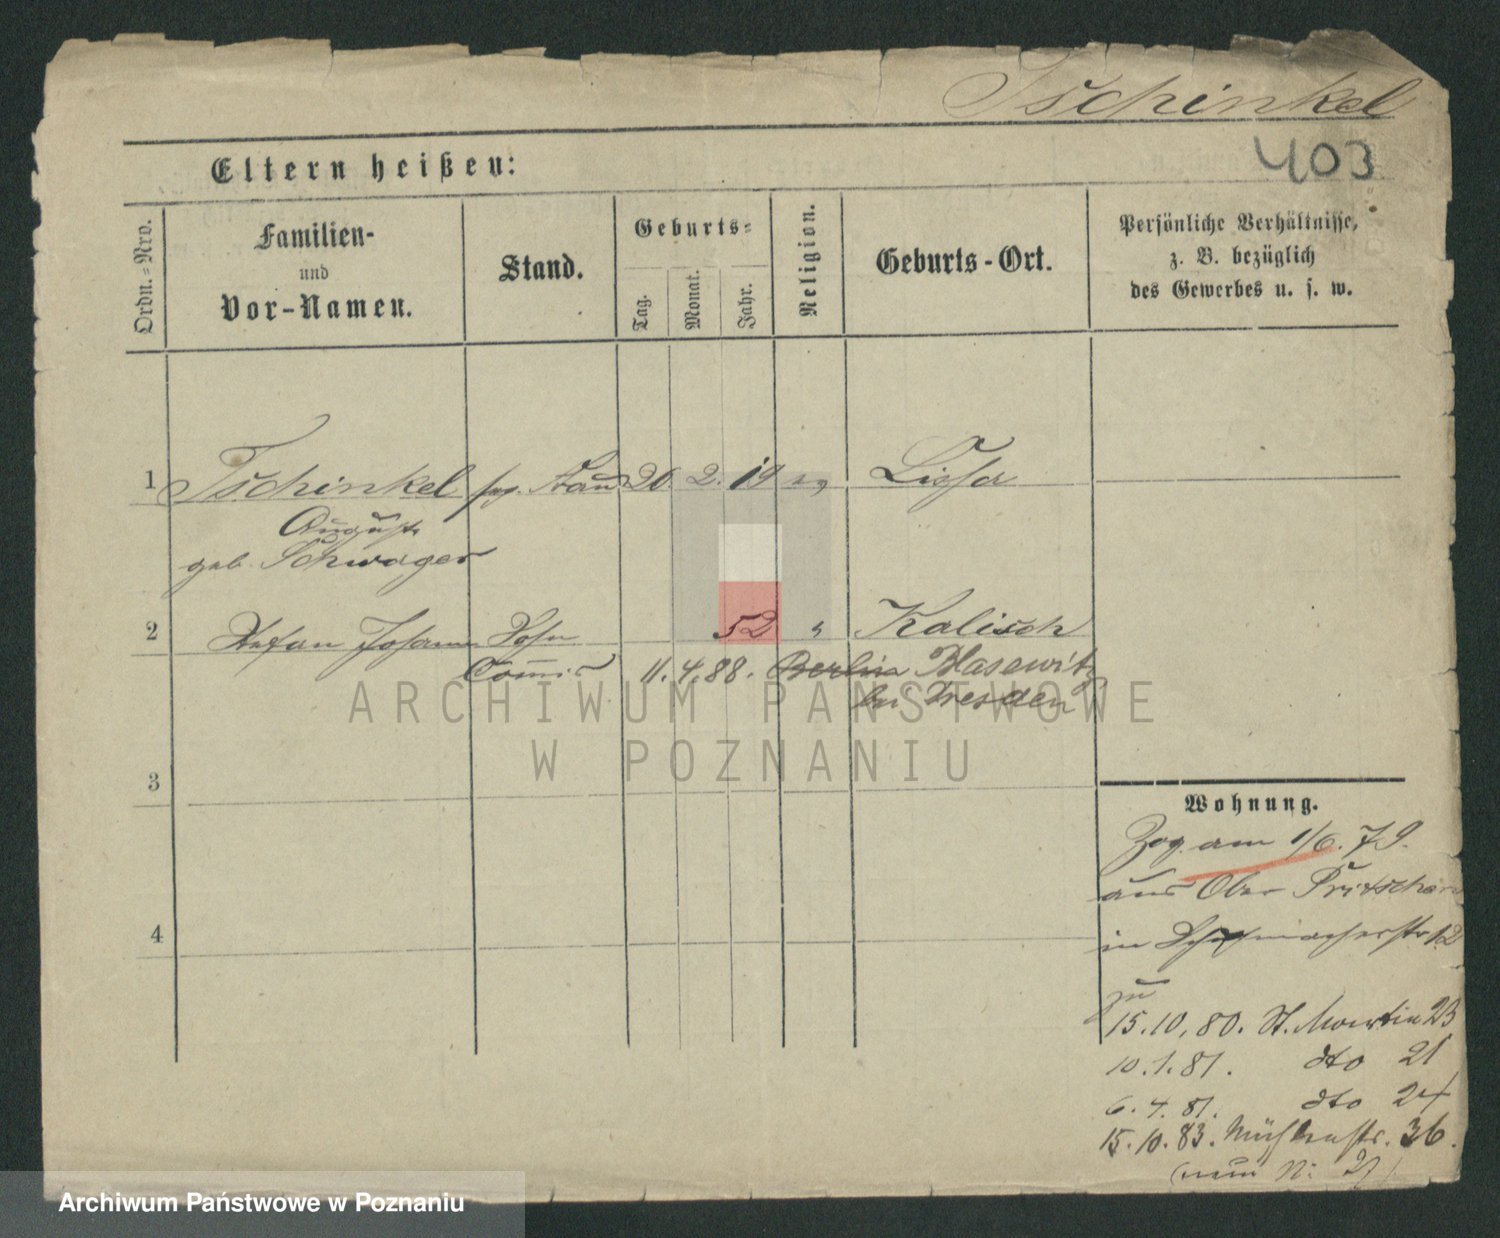 Tschinkel
403
Eltern heißen:
Ordn.-Nro.
Familien-
und
Vor-Namen.
Stand.
Geburts-
Tag.
Monat.
Jahr.
Religion.
Geburts-Ort.
Persönliche Verhältnisse,
z. B. bezüglich
des Gewerbes u. s. w.
1 Tschinkel Frau 20. 2. 19 ev Lissa
Auguste
geb. Schwager
2 Stefan Johann Sohn 52 " Kalisch
Commis 11. 4. 88. Berlin Blasewitz
bei Dresden
ARCHIWUM PAŃSTWOWE
W POZNANIU
3
Wohnung.
Zog. am 1/6. 79.
aus Ober Pritschen
in Schuhmacherstr 12
4
zu
15. 10. 80. St. Martin 23
10. 1. 81. dto 21
6. 4. 81. dto 24
15. 10. 83. Mühlenstr. 36.
(neu N: 27)
Archiwum Państwowe w Poznaniu